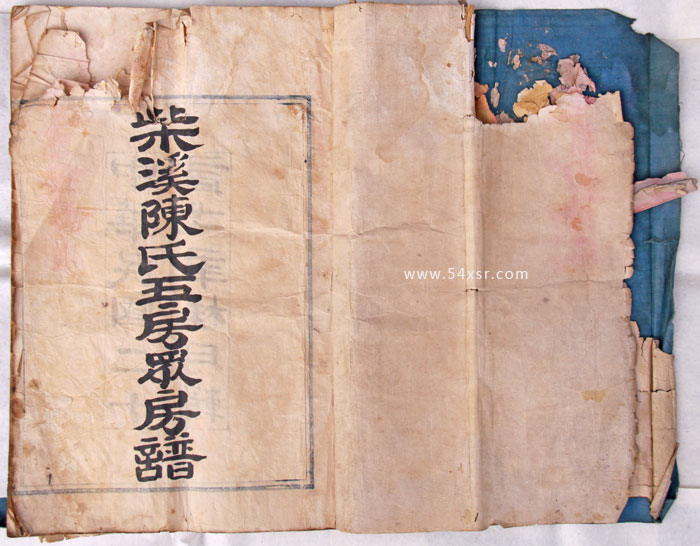 柴溪陳氏五房眾房譜
www.54xsr.com